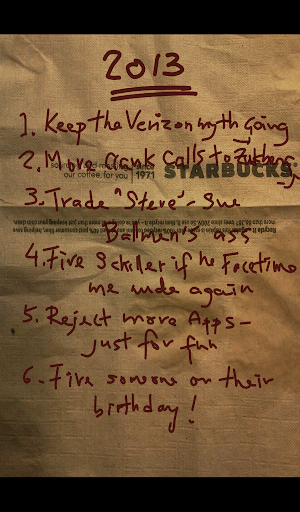 2013
1. Keep the Verizon myth Going
2. More Crank Calls to Zuckerberg
our coffee, for you | 1971 STARBUCKS
3. Trade "Steve" - Sue
Ballmer's ass
4. Fire Schiller if he Facetime
me nude again
5. Reject more Apps-
just for fun
6. Fire someone on their
birthday!